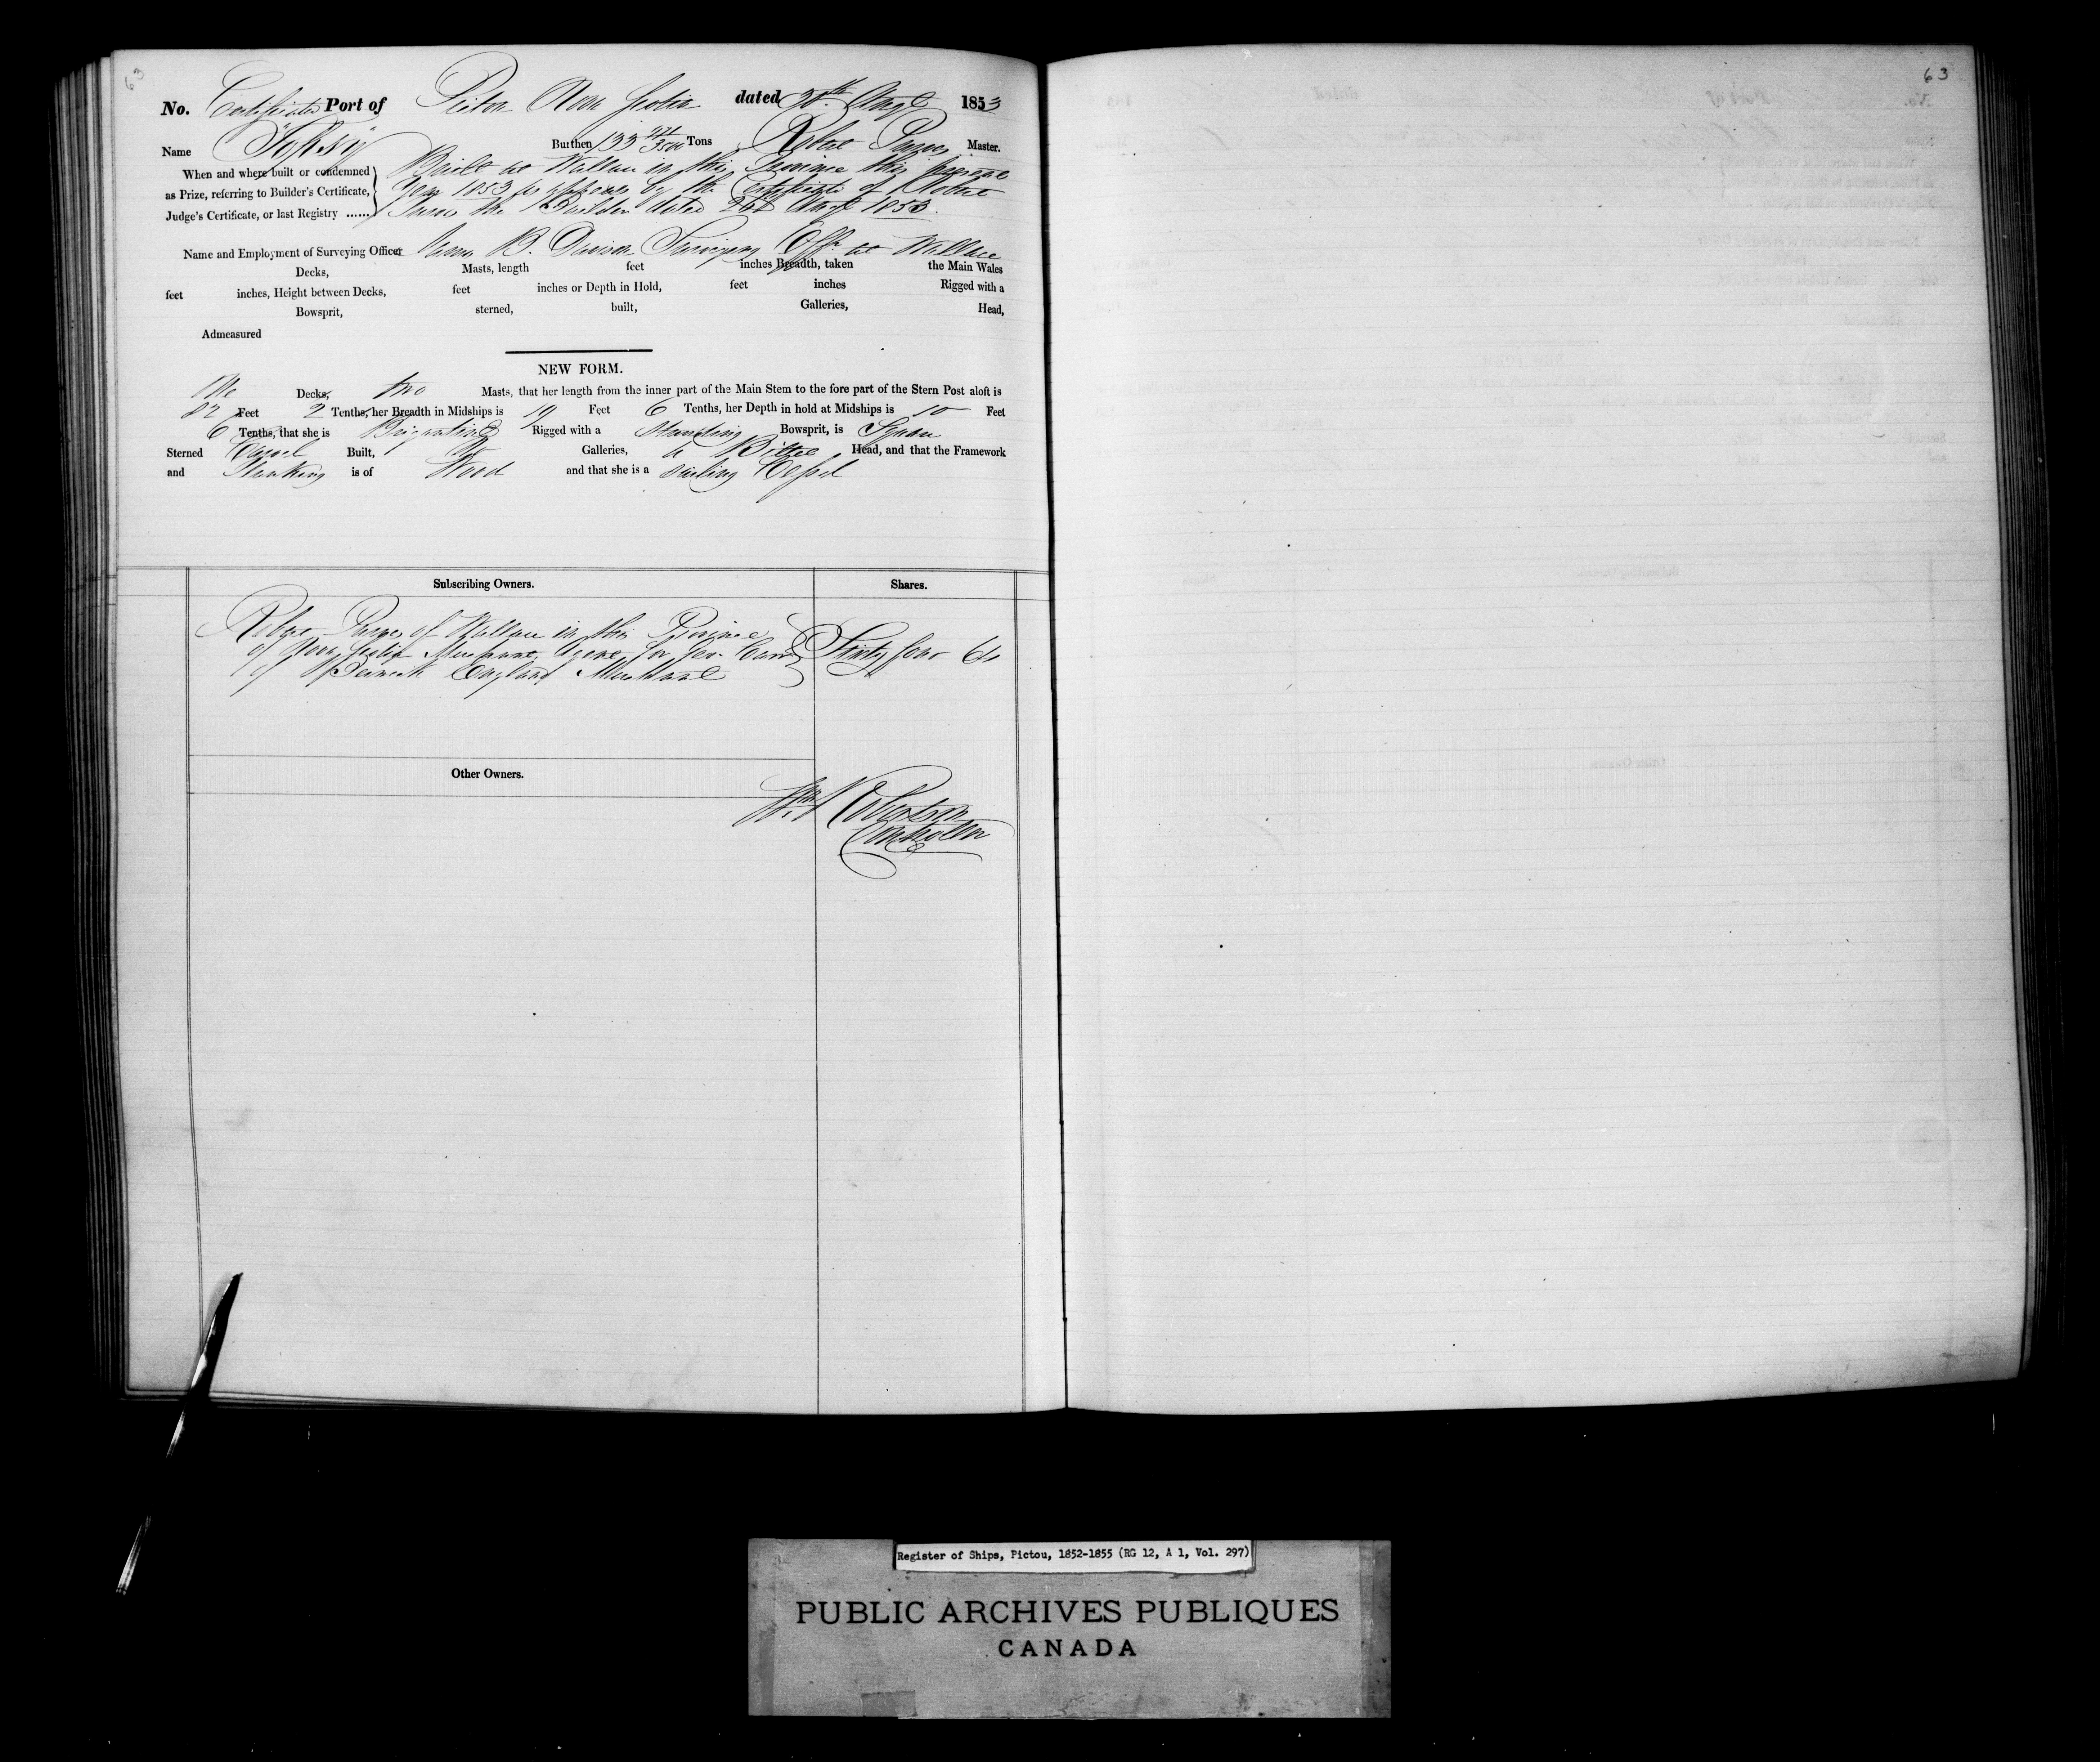 63
63
No. Certificate Port of Pictou Nova Scotia dated 30th Augt 1853
Name Burthen 133 Tons Robert Purves Master.
When and where built or condemned
as Prize, referring to Builder's Certificate,
Judge's Certificate, or last Registry ......
Built at Wallace in this Province this present
year 1853 as appears by the Certificate of Robert
Purves the Builder dated Augt 1853.
Name and Employment of Surveying Officer B. Davison Surveying Offr at Wallace
Decks, Masts, length feet inches Breadth, taken the Main Wales
feet inches, Height between Decks, feet inches or Depth in Hold, feet inches Rigged with a
Bowsprit, sterned, built, Galleries, Head,
Admeasured
NEW FORM.
One Decks, two Masts, that her length from the inner part of the Main Stem to the fore part of the Stern Post aloft is
82 Feet 2 Tenths, her Breadth in Midships is 19 Feet 6 Tenths, her Depth in hold at Midships is 10 Feet
6 Tenths, that she is Brigantine Rigged with a Standing Bowsprit, is Square
Sterned Carvel Built, No Galleries, a Billet Head, and that the Framework
and Planking is of Wood and that she is a sailing Vessel
Subscribing Owners. Shares.
Robert Purves of Wallace in this Province
of Nova Scotia Merchant Agent for Geo.
of Berwick England Merchant
Sixty four 64
Other Owners.
Robertson
Controller
Register of Ships, Pictou, 1852-1855 (RG 12, A 1, Vol. 297)
PUBLIC ARCHIVES PUBLIQUES
CANADA